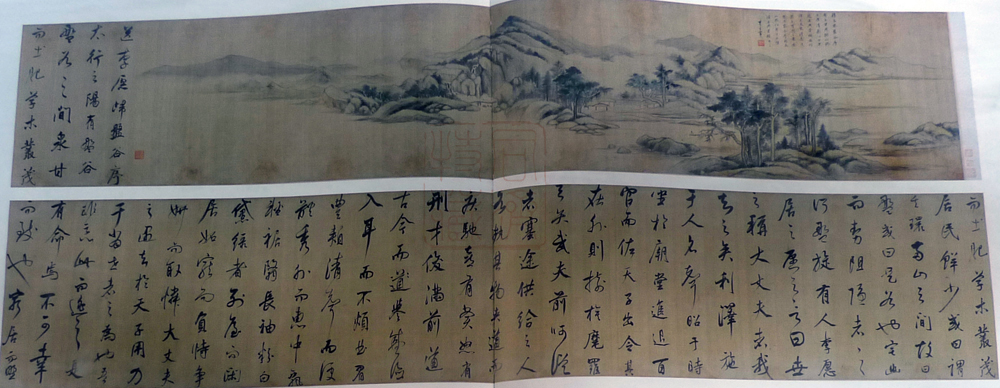 送李愿歸盤谷序
太行之陽有盤谷
盤谷之間泉甘
而土肥草木叢茂
而土肥草木叢茂
居民鮮少或曰謂
其環兩山之間故曰
盤或曰是谷也宅幽
而勢阻隱者之
所盤旋有人李愿
居之愿之言曰
之稱大丈夫者我
知之矣利澤施
于人名聲昭于時
坐於廟堂進退百
官而佐天子出令其
在外則樹旗旄羅
弓矢武夫前呵從
者塞途供給之人
各執其物夾道而
疾馳喜有賞怒有
刑才俊滿前道
古今而道譽盛德
入耳而不煩曲眉
豐頰清聲而便
體秀外而惠中飄
輕裾翳長袖粉白
黛綠者列屋而閑
居妒寵而負恃爭
妍而取憐大丈夫
之遇知於天子用力
于當世者之為也吾
非惡此而逃之是
有命焉不可幸
而致也窮居而野